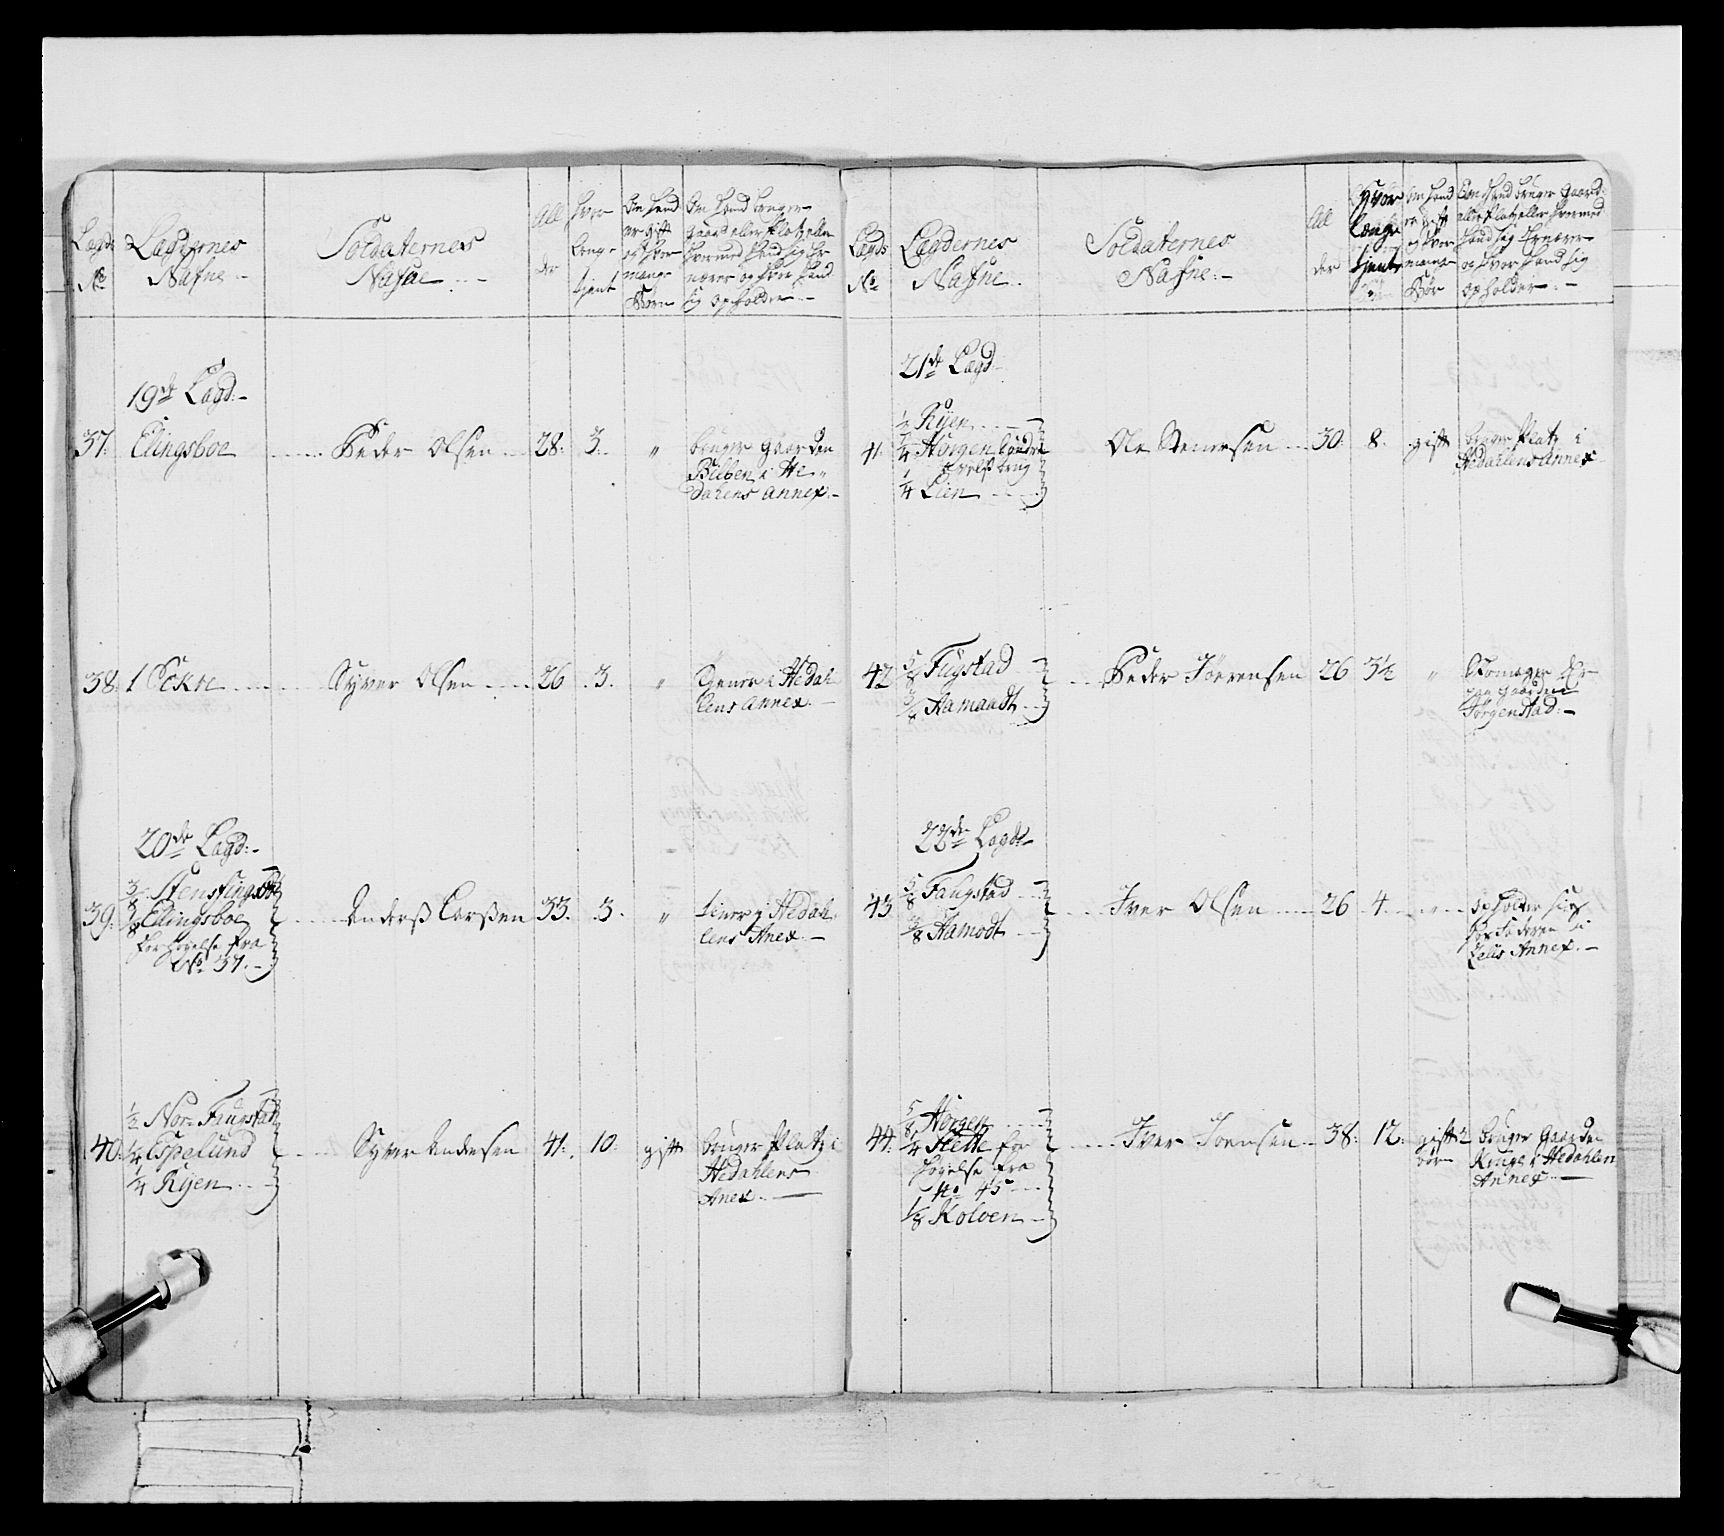 Lægds
No
Lægdernes
Nafne
Soldaternes
Nafne
All
der
hvor
længe
tient
Om hand
er gift
og hvor
mange
Børn
Om hand bruger
gaard eller Platz eller
hvormed hand sig Er
nærer og hvor hand
sig opholder
19de Lægd
37. Elingsboe Peder Olsen 28. 3. "
bruger gaarden
i He
dalens annex
38. 1 Syver Olsen 26 3. "
Tiener i Hedah
lens annex
20de Lægd
39. 3/8
3/8 Elingsboe
fra
No 37.
Anderß Larßen 33. 3. "
tiener i Hedah
lens Anex
40. 1/2 Nor Faugstad
1/4 Espelund
1/4 Kyen
Syver Andersen 41. 10. gift
bruger Platz i
Hedahlens
Anex
Lægds
No
Lægdernes
Nafne
Soldaternes
Nafne
All
der
Hvor
Længe
tient
om hand
er gift
og hvor
mange
Bør
Om Hand bruger Gaard
eller Platz eller hvormed
hand sig Ernærer
og hvor hand sig
opholder
21de Lægd
41. 1/2 Kyen
1/4 Horgen
brug
1/4 Lien
Ole Stenersen 30. 8. gift
bruger Platz i
Hedahlens Annex
42 5/8 Fugstad
3/8 Aamaadt
Peder Joerensen 26 3½ "
Er
paa Gaarden
Jørgenstad
22de Lægd
43 5/8 Faugstad
3/8 Aamodt
Iver Olsen 26 4. "
opholder sig
hos faderen i
Annex
44. 5/8 Horgen
1/4 Hette for
høyelse fra
No 45
1/8 Kolven
Iver Joensen 38. 12. gift 2
børn
bruger Gaarden
i Hedahlen
Annex